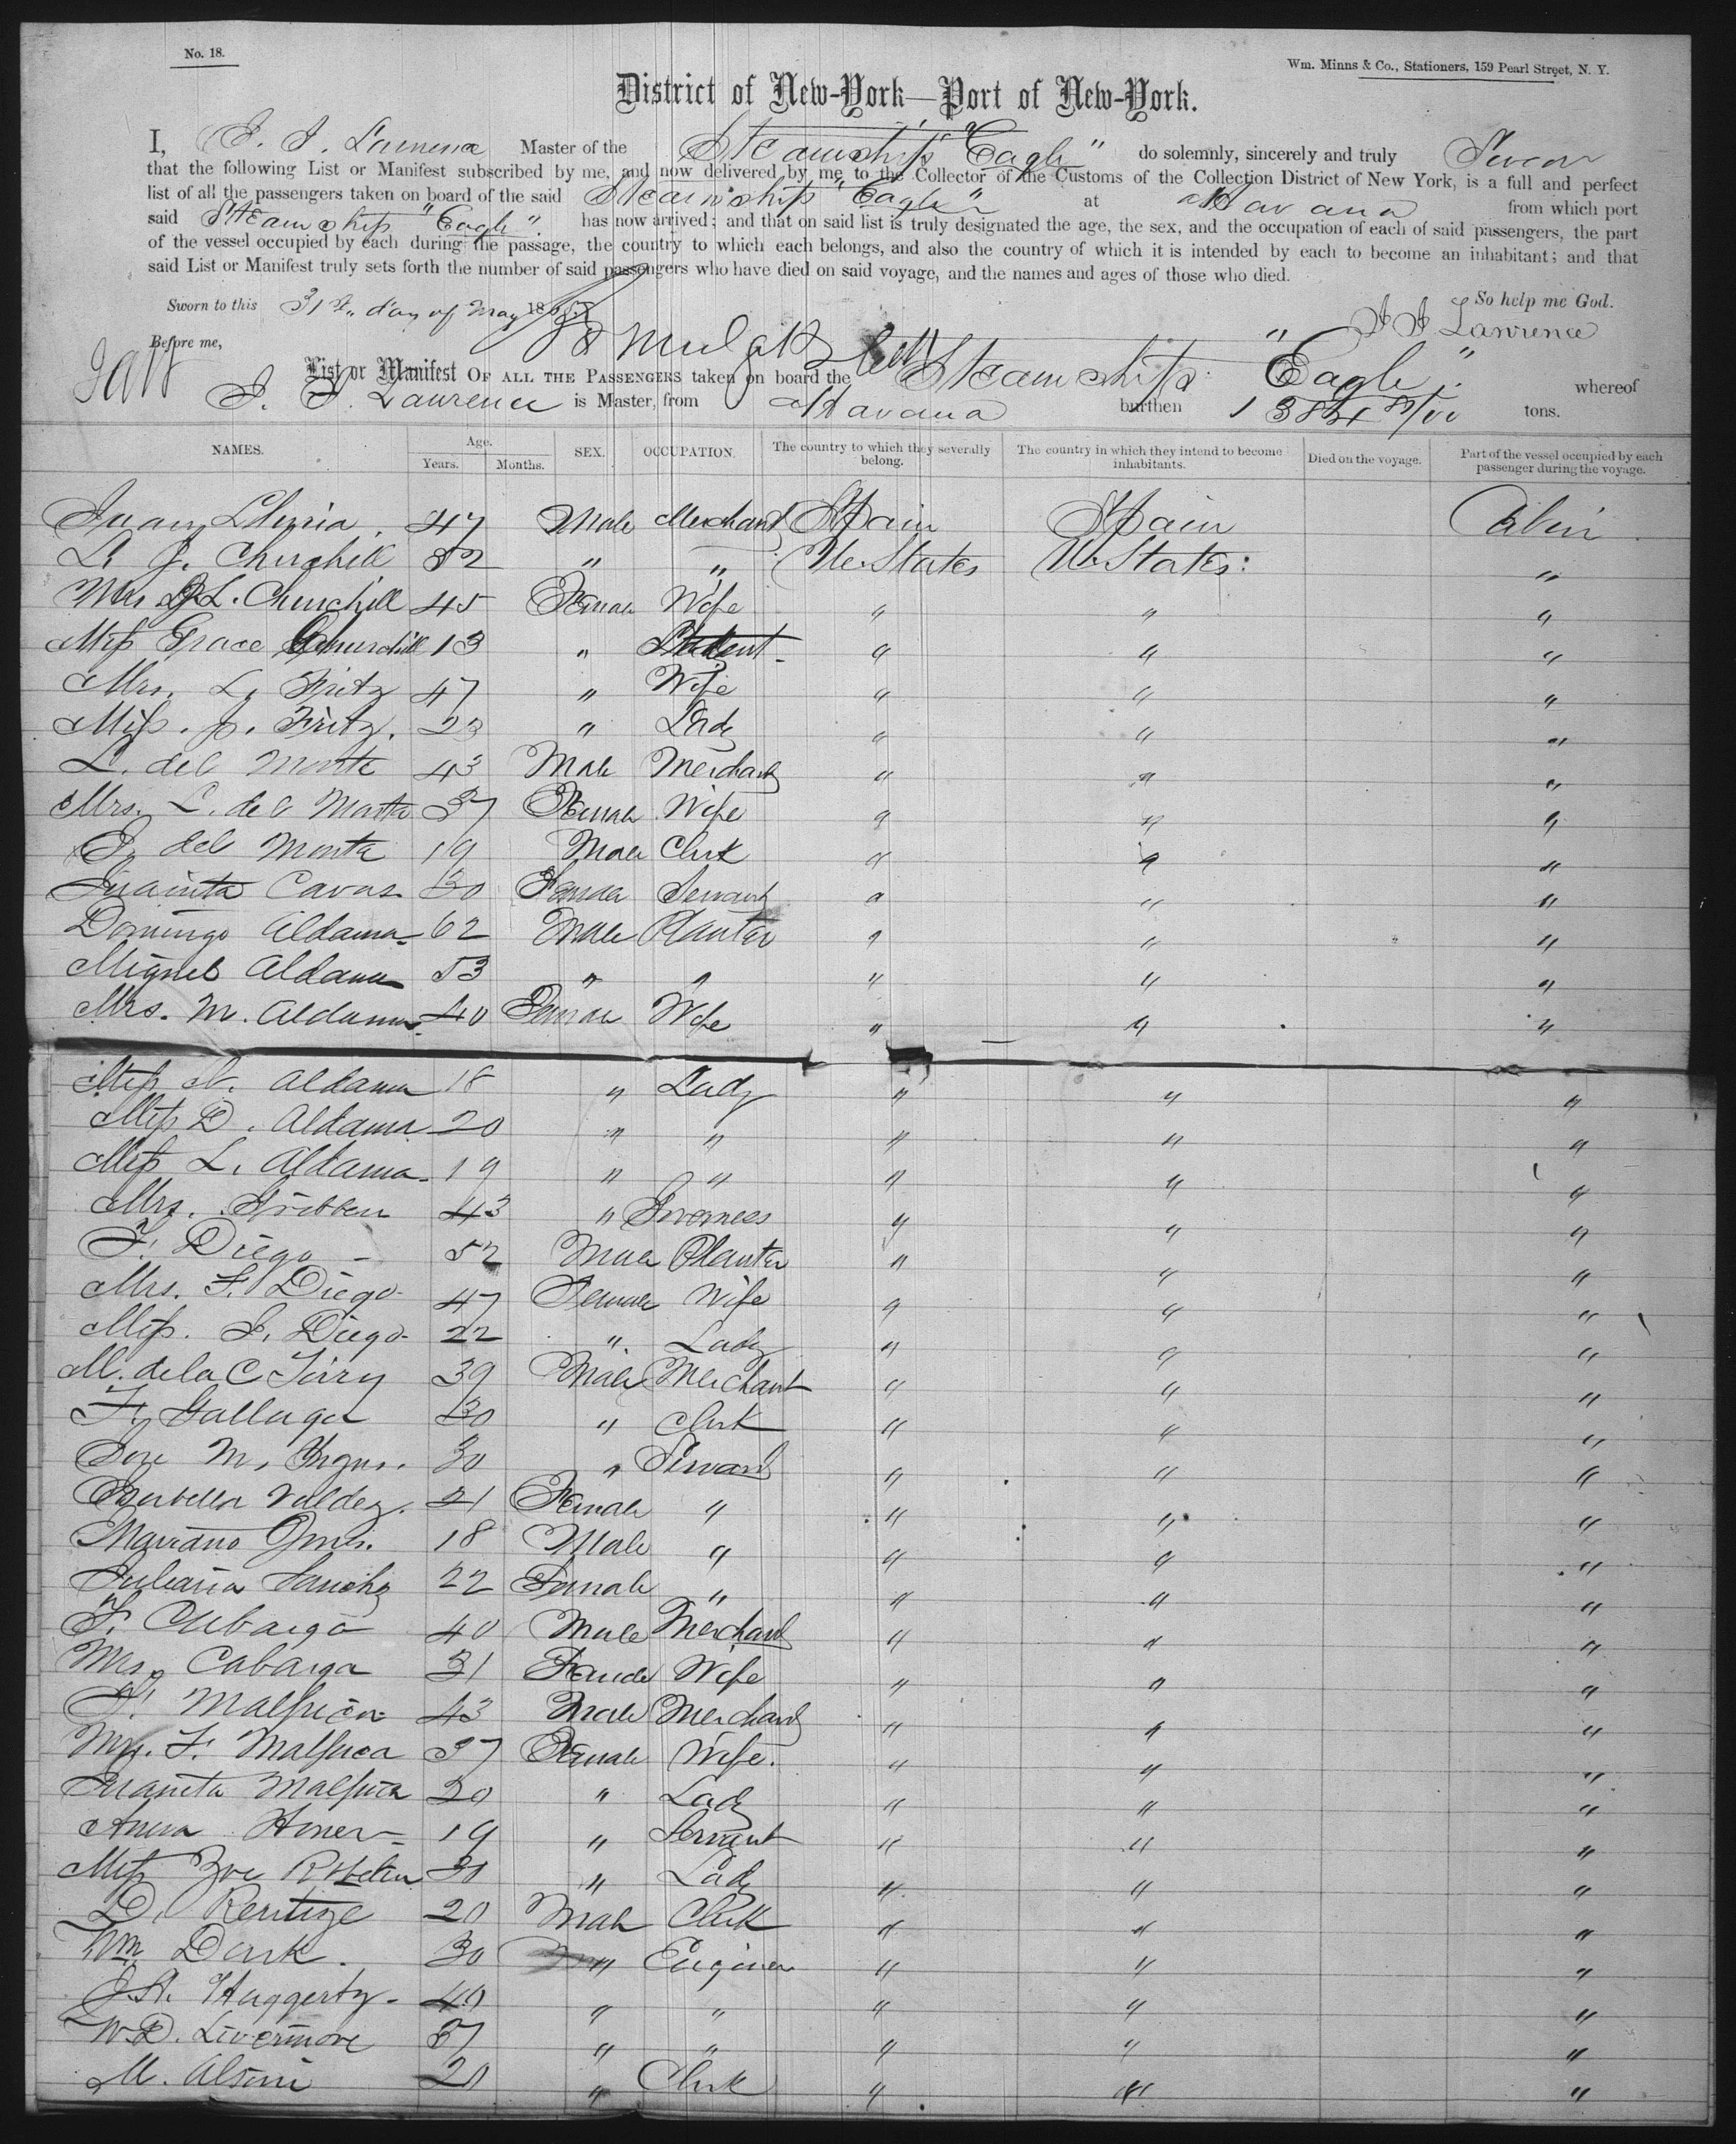 No. 18.
Wm. Minns & Co., Stationers, 159 Pearl Street, N. Y.
District of New-York—Port of New-York.
I, Master of the Steamship "Eagle" do solemnly, sincerely and truly Swear
that the following List or Manifest subscribed by me, and now delivered by me to the Collector of the Customs of the Collection District of New York, is a full and perfect
list of all the passengers taken on board of the said Steamship "Eagle" at Havana from which port
said Steamship "Eagle" has now arrived; and that on said list is truly designated the age, the sex, and the occupation of each of said passengers, the part
of the vessel occupied by each during the passage, the country to which each belongs, and also the country of which it is intended by each to become an inhabitant; and that
said List or Manifest truly sets forth the number of said passengers who have died on said voyage, and the names and ages of those who died.
So help me God.
Sworn to this 31st day of May 18
Lawrence
Before me,
List or Manifest OF ALL THE PASSENGERS taken on board the Steamship "Eagle" whereof
Lawrence is Master, from Havana burthen tons.
NAMES. Age. Years. Months. SEX. OCCUPATION. The country to which they severally belong. The country in which they intend to become inhabitants. Died on the voyage. Part of the vessel occupied by each passenger during the voyage.
Juan 47 Male Merchant Spain Spain Cabin
L. J. Churchill 52 " " U. States U. States "
Mrs L. Churchill 45 Female Wife " " "
Miss Grace Churchill 13 " Student " " "
Mrs. L. Fritz 47 " Wife " " "
Miss. J. Fritz. 23 " Lady " " "
L. del Monte 43 Male Merchant " " "
Mrs. L. del Monte 37 Female Wife " " "
del Monte 19 Male Clerk " " "
Juanita Cavas 30 Female Servant " " "
Domingo Aldama 62 Male Planter " " "
Miguel Aldama 53 " " " " "
Mrs. M. Aldama 40 Female Wife " " "
Miss Aldama 18 " Lady " " "
Miss D. Aldama 20 " " " " "
Miss L. Aldama 19 " " " " "
Mrs. Gribben 43 " Governess " " "
F. Diego 52 Male Planter " " "
Mrs. F. Diego 47 Female Wife " " "
Miss. Diego 22 " Lady " " "
M. de la C 39 Male Merchant " " "
F. 30 " Clerk " " "
Jose M. 30 " Servant " " "
Valdez. 21 Female " " " "
Mariano 18 Male " " " "
Juliana Sanchez 22 Female " " " "
F. Cabarga 40 Male Merchant " " "
Mrs. Cabarga 31 Female Wife " " "
F. Malpica 43 Male Merchant " " "
Mrs. F. Malpica 37 Female Wife. " " "
Juanita Malpica 20 " Lady " " "
Anna 19 " Servant " " "
Miss Zoe 30 " Lady " " "
D. 20 Male Clerk " " "
Wm Dark. 30 " Engineer " " "
Haggerty 40 " " " " "
W. D. Livermore 37 " " " " "
M. 20 " Clerk " " "